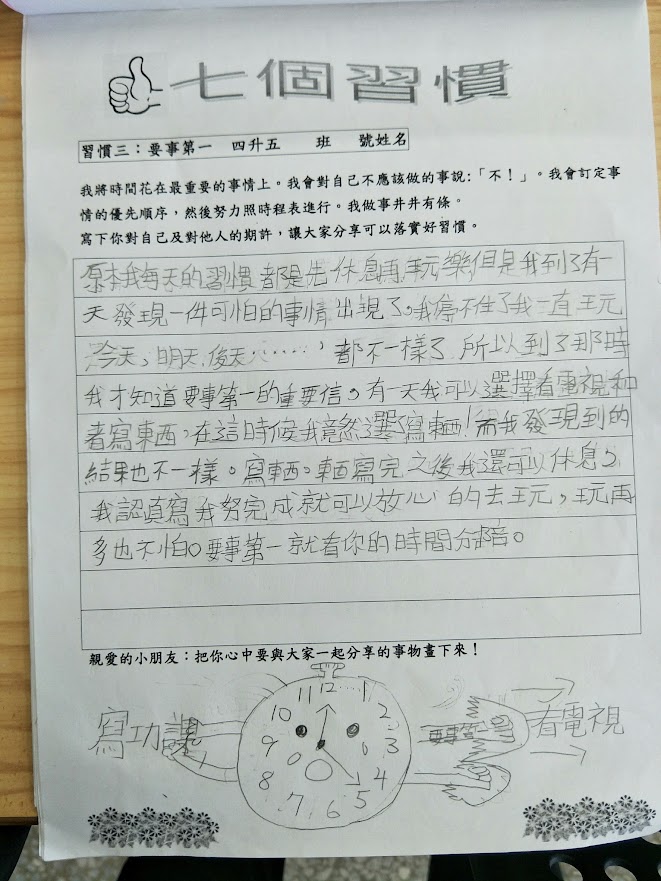 七個習慣
習慣三：要事第一 四升五 班 號姓名
我將時間花在最重要的事情上。我會對自己不應該做的事說:「不！」。我會訂定事
情的優先順序，然後努力照時程表進行。我做事井井有條。
寫下你對自己及對他人的期許，讓大家分享可以落實好習慣。
原本我每天的習慣都是先休息再玩樂但是我到了有一
天發現一件可怕的事情出現了，我停不住了我一直玩
今天，明天，後天……，都不一樣了，所以到了那時
我才知道要事第一的重要信。有一天我可以選擇看電視和
者寫東西，在這時候我竟然選了寫東西！而我發現到的
結果也不一樣。寫東西。東西寫完之後我還可以休息，
我認真寫我努完成就可以放心的去玩，玩再
多也不怕。要事第一就看你的時間分陪。
親愛的小朋友：把你心中要與大家一起分享的事物畫下來！
11 12 1
10 2
9 3
8 4
7 6 5
寫功課
看電視